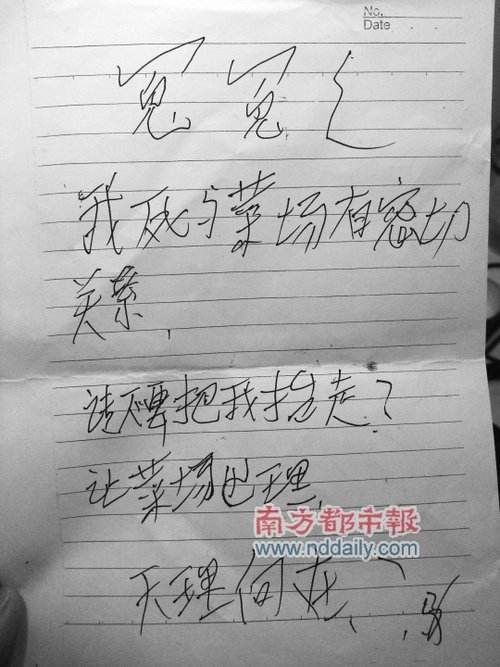 No.
Date
冤 冤
我死与菜场有密切
关系.
请不要把我抬走?
让菜场处理.
南方都市報
www.nddaily.com
天理何在